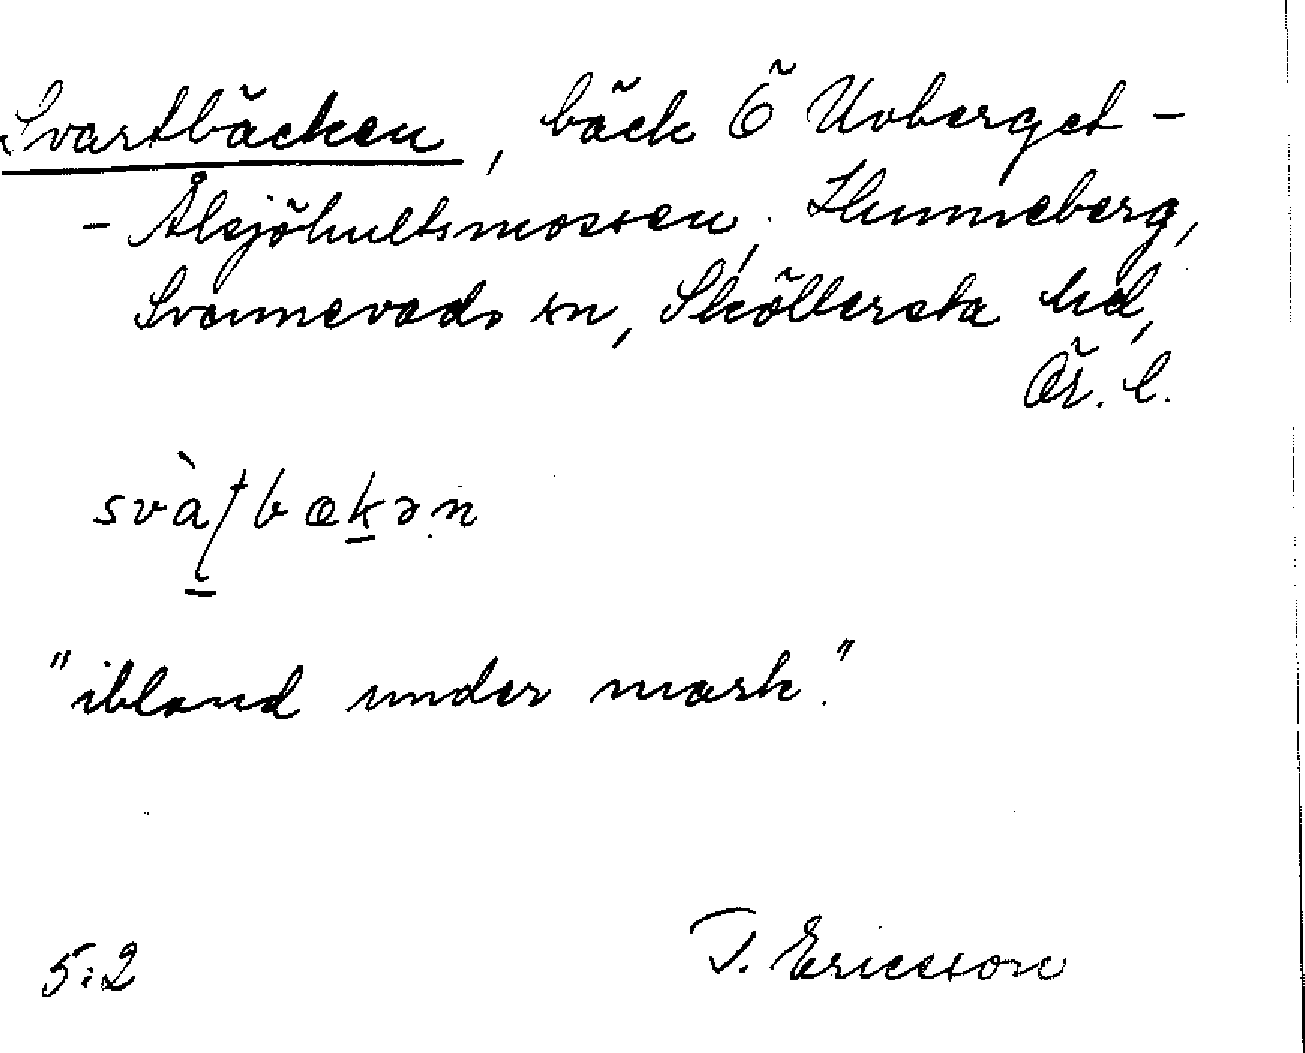 Svartbäcken, bäck Ö Uvberget -
- Ålsjöhultsmossen, Hunneberg,
Svennevads sn, Sköllersta hd,
Ör. l.
svàʈbækən
"ibland under mark."
5:2 T. Ericsson